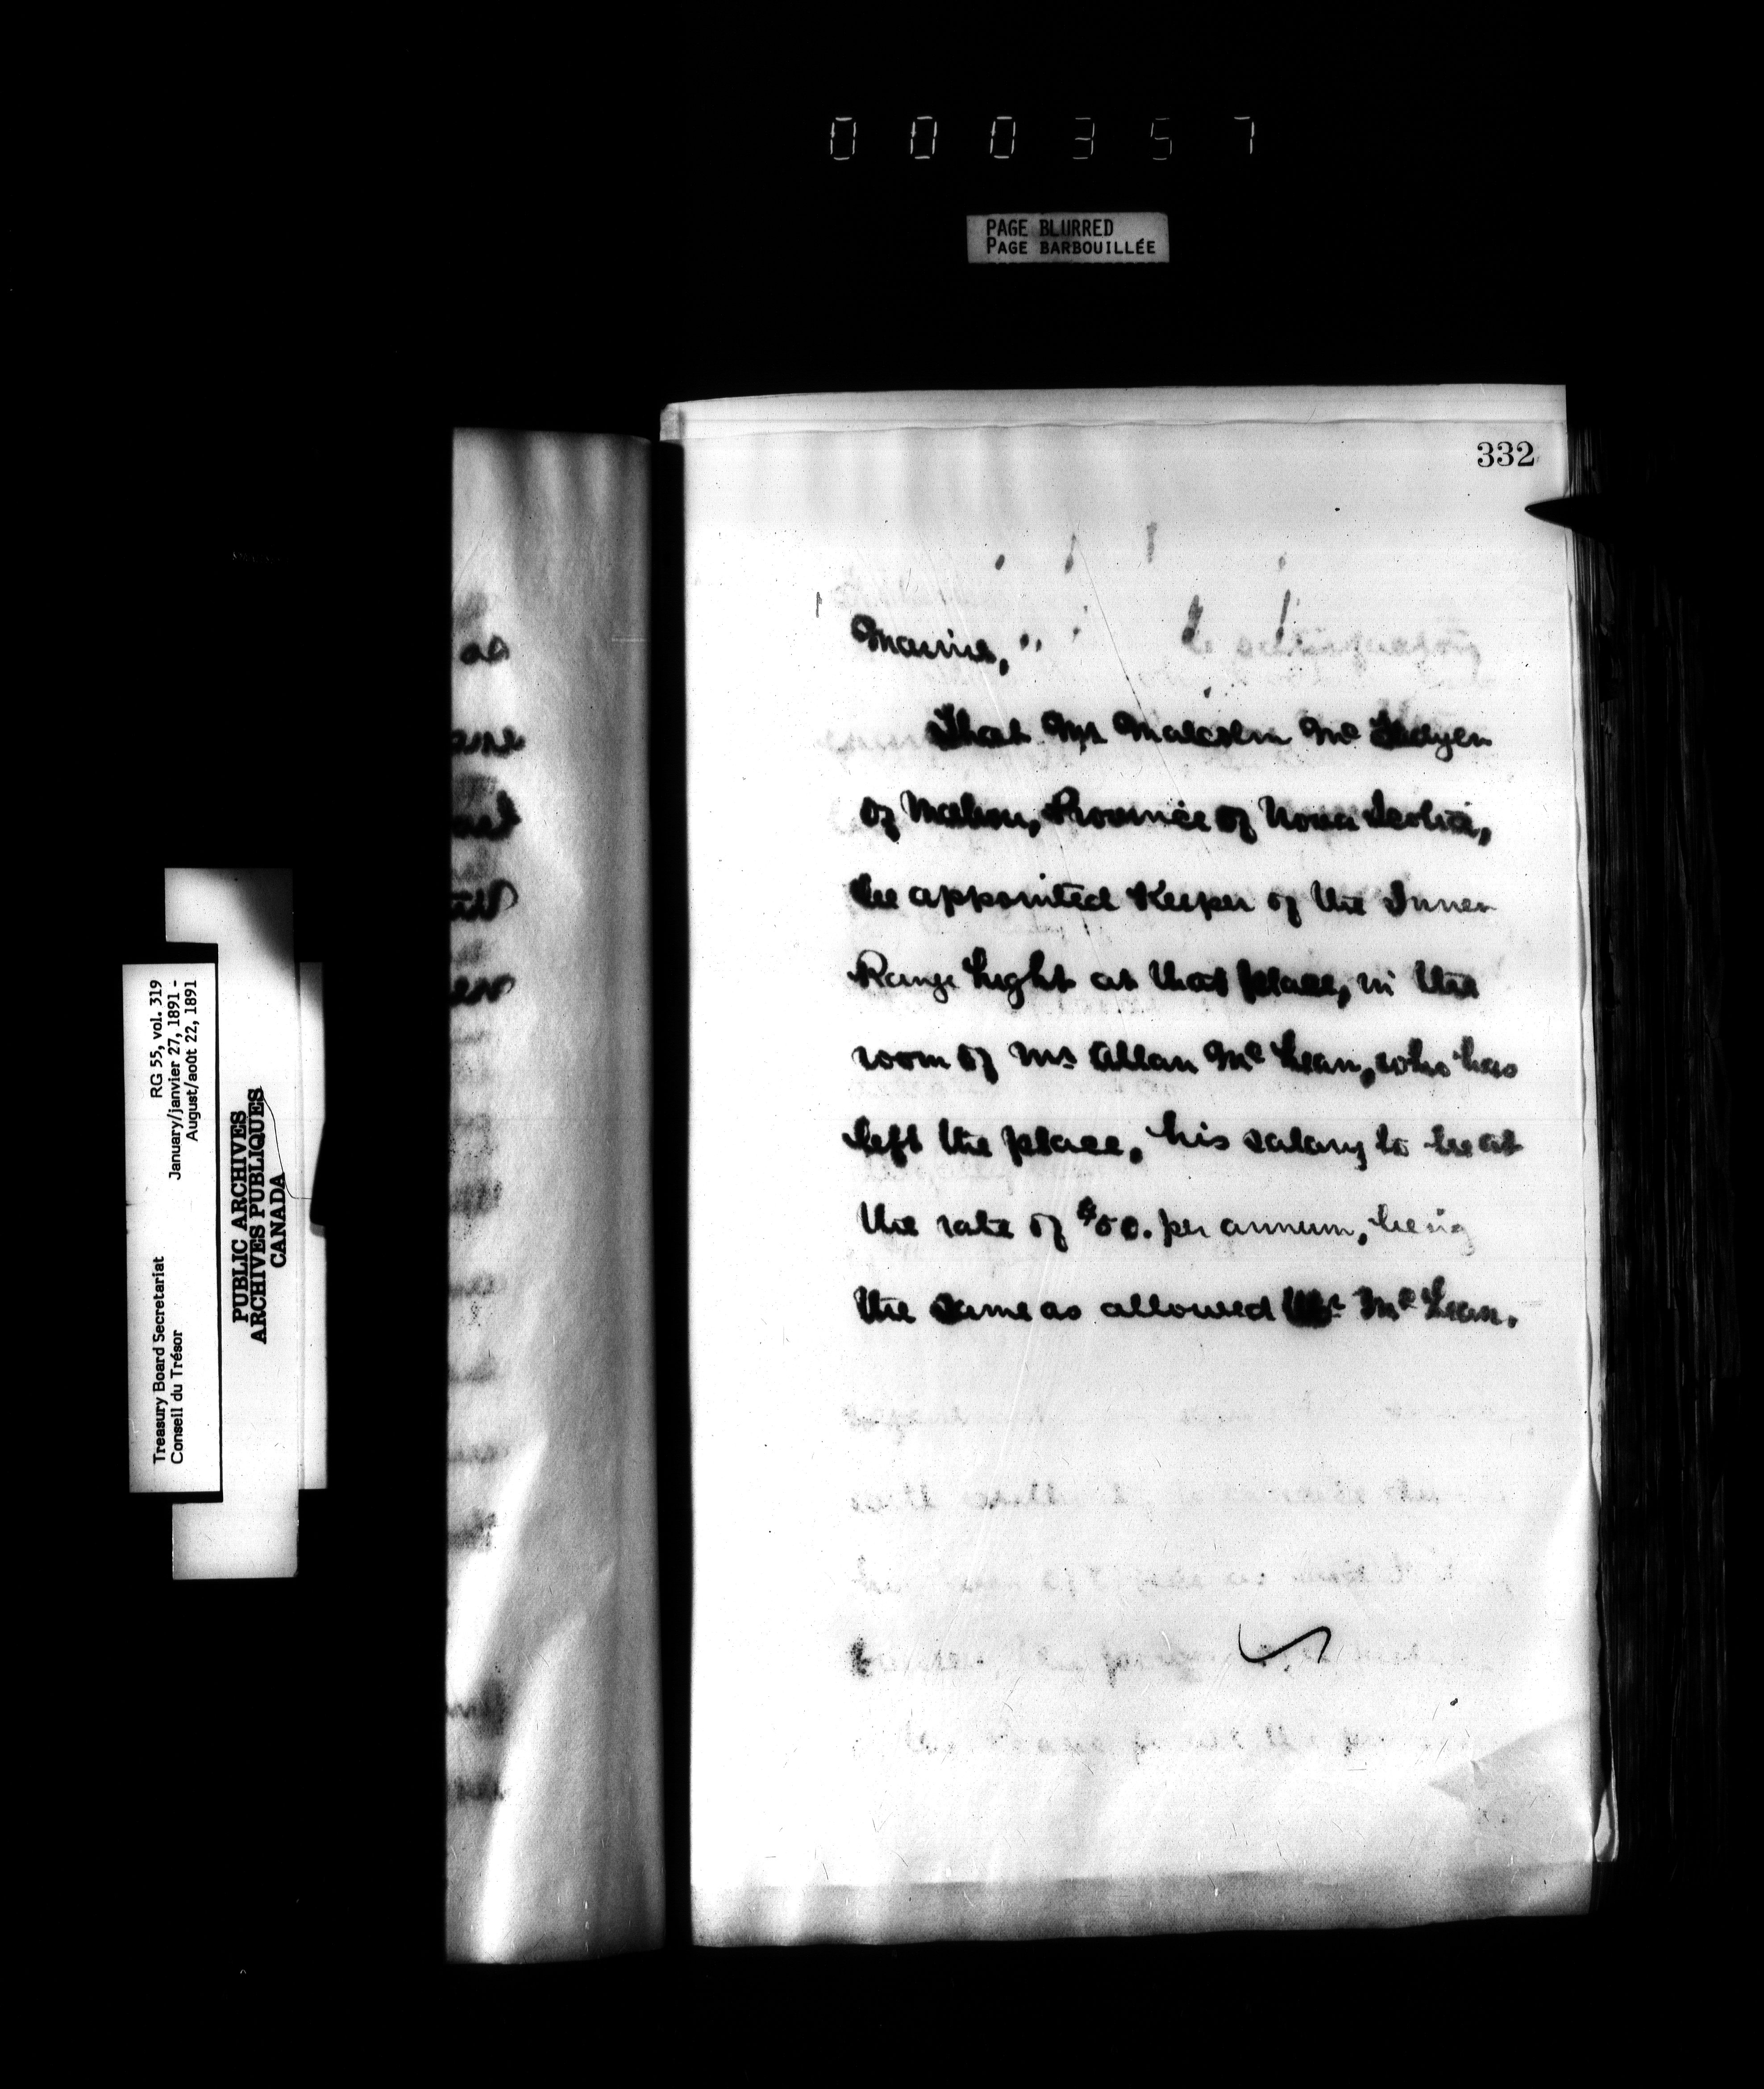 000357
PAGE BLURRED
PAGE BARBOUILLÉE
332
Marine,"
That Mr Malcolm Mc Fadyen
of Mabou, Province of Nova Scotia,
be appointed Keeper of the Inner
Range Light at that place, in the
room of Mr Allan Mc Lean, who has
left the place, his salary to be at
the rate of $50. per annum, being
the same as allowed Mr Mc Lean.
RG 55, vol. 319
January/janvier 27, 1891 -
August/août 22, 1891
Treasury Board Secretariat
Conseil du Trésor
PUBLIC ARCHIVES
ARCHIVES PUBLIQUES
CANADA